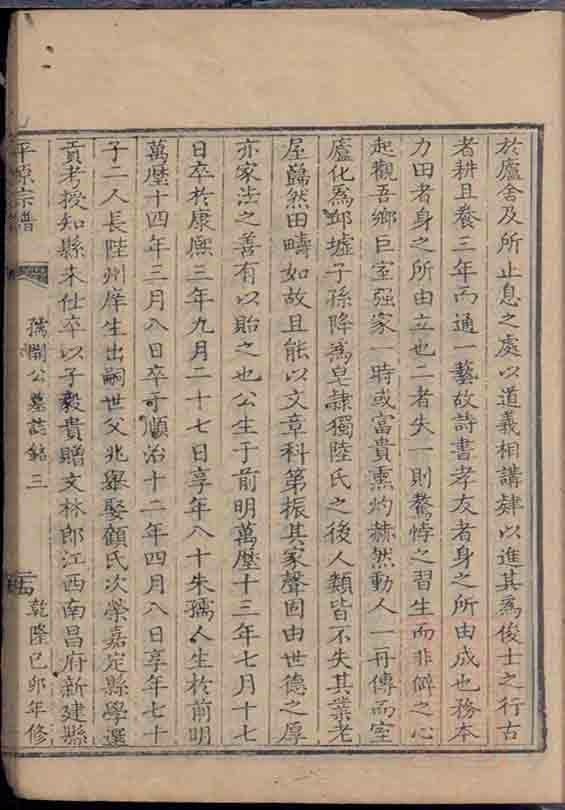 於廬舍及所止息之處以道義相講肄以進其爲俊士之行古
者耕且養三年而通一藝故詩書孝友者身之所由成也務本
力田者身之所由立也二者失一則驁悖之習生而非僻之心
起觀吾鄉巨室强家一時或富貴熏灼赫然動人一再傳而室
廬化爲邱墟子孫降爲皂隸獨陸氏之後人類皆不失其業老
屋巋然田疇如故且能以文章科第振其家聲固由世德之厚
亦家法之善有以貽之也公生于前明萬曆十三年七月十七
日卒於康熙三年九月二十七日享年八十朱孺人生於前明
萬曆十四年三月八日卒于順治十二年四月八日享年七十
子二人長陞州庠生出嗣世父兆舉娶顧氏次榮嘉定縣學選
貢考授知縣未仕卒以子毅貴贈文林郎江西南昌府新建縣
平原宗譜
孺開公墓誌銘 三
乾隆己卯年修